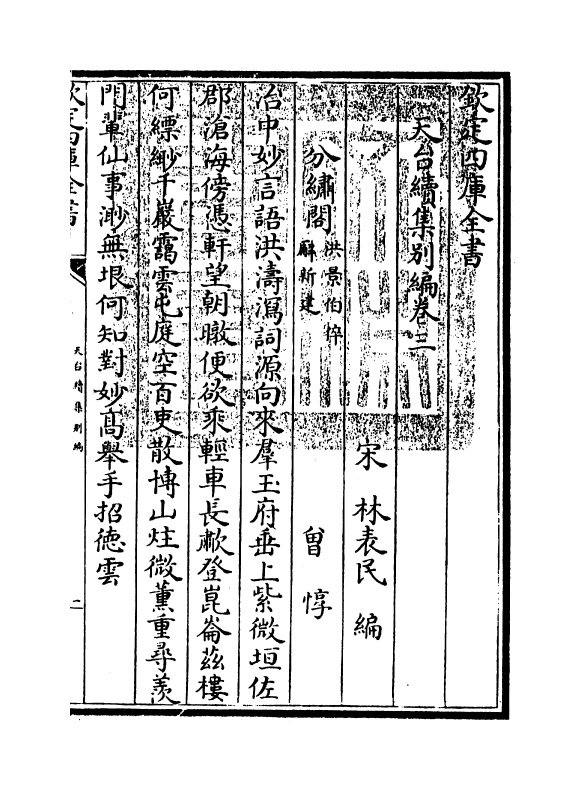 欽定四庫全書
天台續集別編卷三
宋 林表民 編
分繡閣 洪景伯倅廨新建 曾惇
治中妙言語洪濤瀉詞源向來羣玉府垂上紫微垣佐
郡滄海傍憑軒望朝暾便欲乘輕車長歗登崑崙茲樓
何縹緲千巖靄雲屯庭空百吏散博山炷微薰重尋羨
門輩仙事渺無垠何知對妙髙舉手招德雲
欽定四庫全書
天台續集別編
二